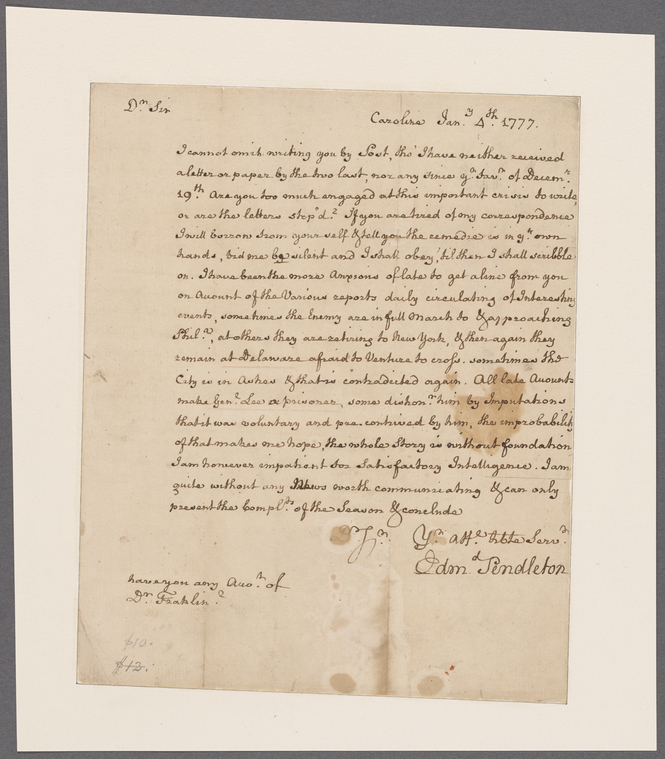 Dr. Sir
Caroline Jany. 4th. 1777.
I cannot omit writing you by Post, tho' I have neither received
a letter or paper by the two last, nor any since yr. favr. of Decemr.
19th. Are you too much engaged at this important crisis to write,
or are the letters stop'd? If you are tired of my correspondence
I will borrow from your self & tell you the remedie is in yr. own
hands, bid me be silent and I shall obey, 'til then I shall scribble
on. I have been the more Anxious of late to get a line from you
on Account of the Various reports daily circulating of Interesting
events, sometimes the Enemy are in full March to & approaching
Phila., at others they are retiring to New York, & then again they
remain at Delaware afraid to Venture to cross. sometimes the
City is in Ashes & that is contradicted again. All late Accounts
make Genl. Lee a prisoner, some dishonr. him by Imputations
that it was voluntary and pre-contrived by him, the improbability
of that makes me hope, the whole Story is without foundation
I am however impatient for Satisfactory Intelligence. I am
quite without any News worth communicating & can only
present the Complts. of the Season & conclude
Yr. affe. hble Servt.
Edmd. Pendleton
have you any Accot. of
Dr. Fraklin?
$10.
$12.